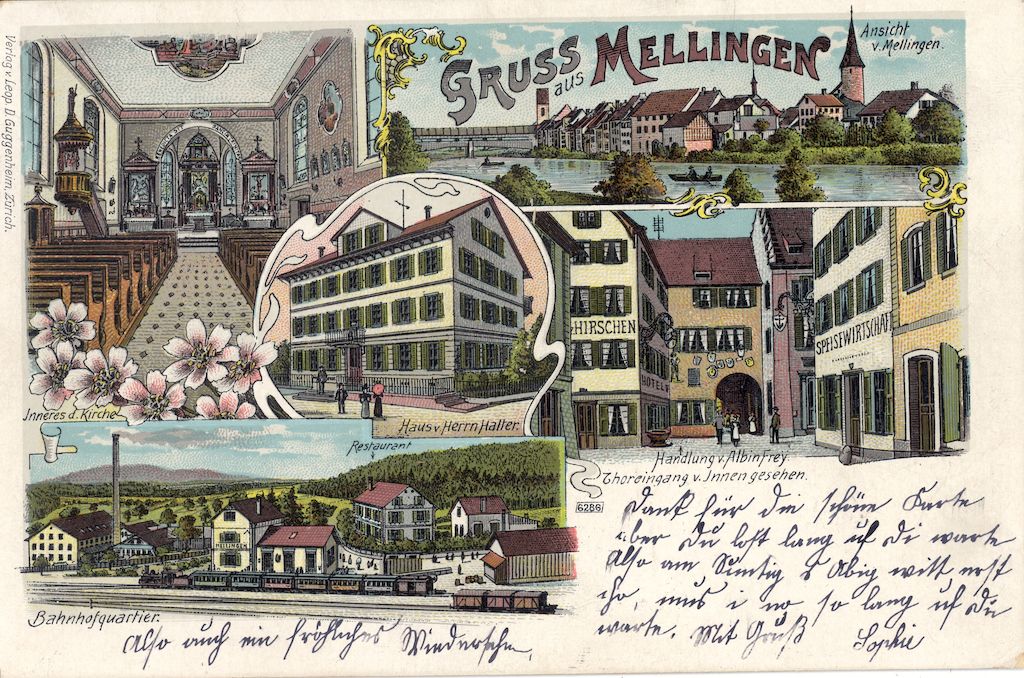 Verlag v. Leop. D. Guggenheim, Zürich.
GRUSS
aus
MELLINGEN
Ansicht
v. Mellingen.
HIRSCHEN
HOTEL
SPEISEWIRTSCHAF
Inneres d. Kirche
Haus v. Herrn Haller.
Restaurant
Handlung v. Albin Frey.
Thoreingang v. Innen gesehen.
6286
MELLINGEN
Bahnhofquartier.
Dank für die schöne Karte
aber Du lost lang uf di warte
Also am Suntig z Abig witt erst
cho, mus i no so lang uf Di
warte. Mit Gruß
Sophie
Also auch ein fröhliches Wiedersehn,